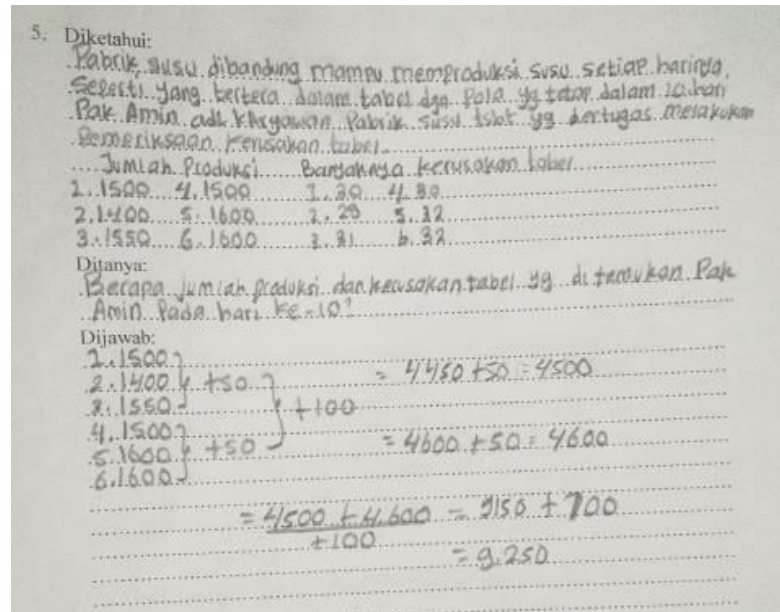 5. Diketahui:
Pabrik susu dibandung mampu memproduksi susu setiap harinya.
Seperti yang tertera dalam tabel dgn pola yg tetap dalam 10 hari
Pak Amin adl karyawan Pabrik susu tsbt yg bertugas melakukan
Pemeriksaan kerusakan label.
Jumlah Produksi Banyaknya kerusakan label
1. 1500 4. 1500 1. 30 4. 30
2. 1400 5. 1600 2. 29 5. 32
3. 1550 6. 1600 3. 31 6. 32
Ditanya:
Berapa jumlah produksi dan kerusakan tabel yg ditemukan Pak
Amin Pada hari ke-10?
Dijawab:
1. 1500
2. 1400 +50 = 4450 +50 = 4500
3. 1550 +100
4. 1500
5. 1600 +50 = 4600 + 50 = 4600
6. 1600
= 4500 + 4.600 = 9150 + 700
+100
= 9.250